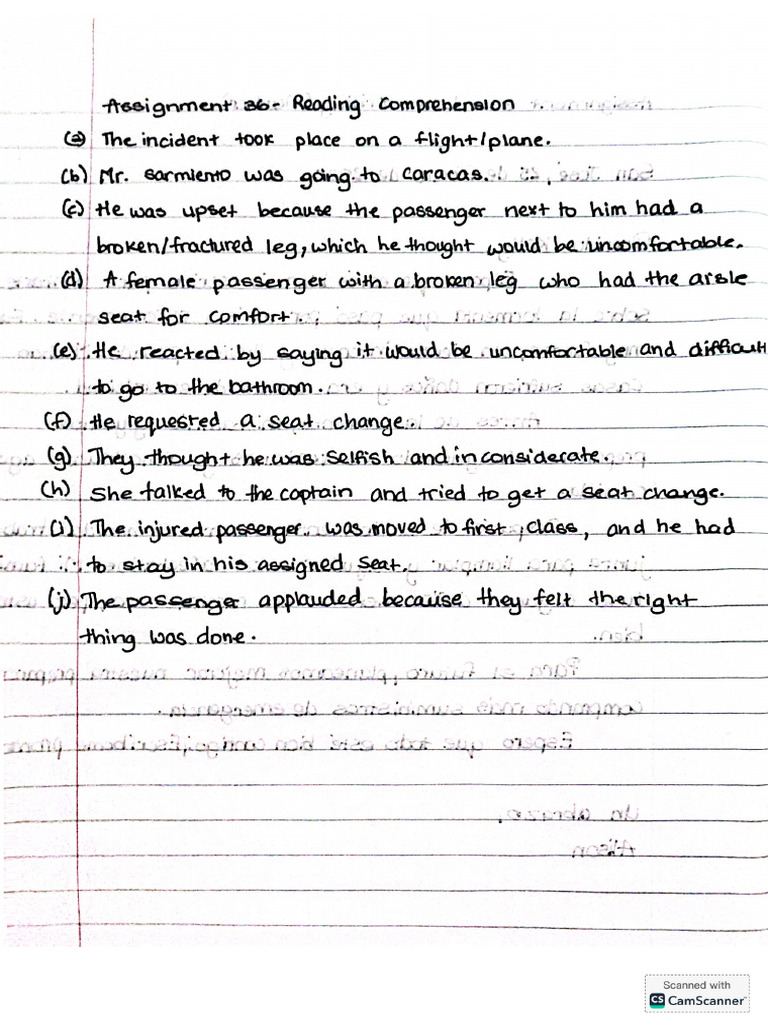 Assignment 36- Reading Comprehension
(a) The incident took place on a flight/plane.
(b) Mr. Sarmiento was going to Caracas.
(c) He was upset because the passenger next to him had a
broken/fractured leg, which he thought would be uncomfortable.
(d) A female passenger with a broken leg who had the aisle
seat for comfort
(e) He reacted by saying it would be uncomfortable and difficult
to go to the bathroom.
(f) He requested a seat change.
(g) They thought he was selfish and inconsiderate.
(h) She talked to the captain and tried to get a seat change.
(i) The injured passenger was moved to first class, and he had
to stay in his assigned seat.
(j) The passenger applauded because they felt the right
thing was done.
Scanned with
CS CamScanner